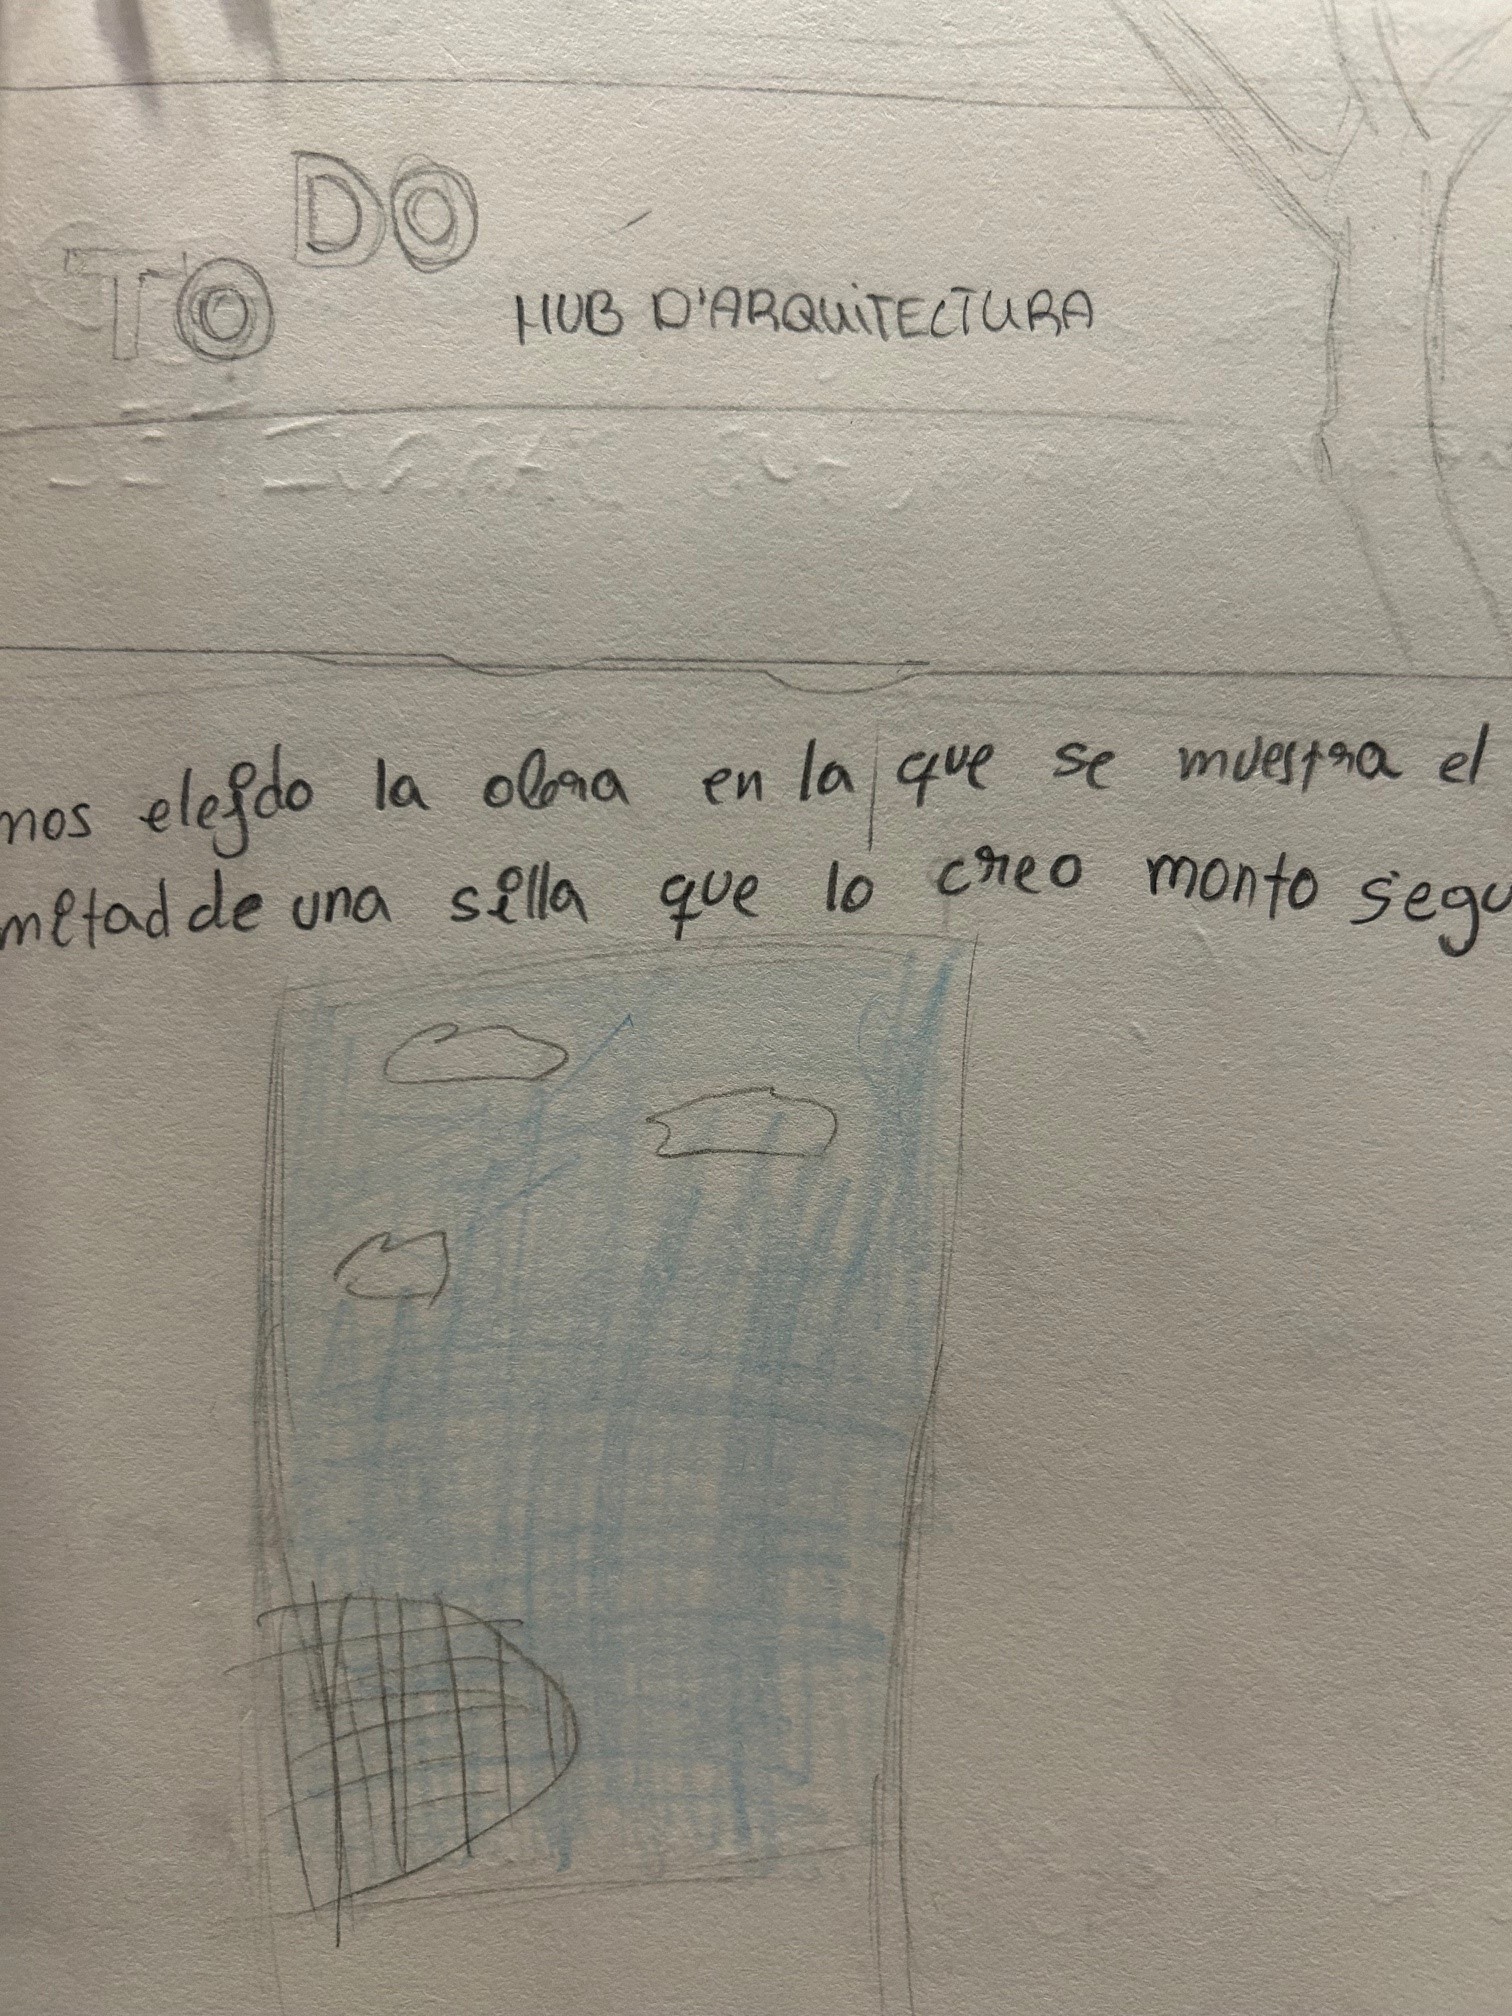 TO DO
HUB D'ARQUiTECTURA
mos elegido la obra en la que se muestra el
mitad de una silla que lo creo monto segu